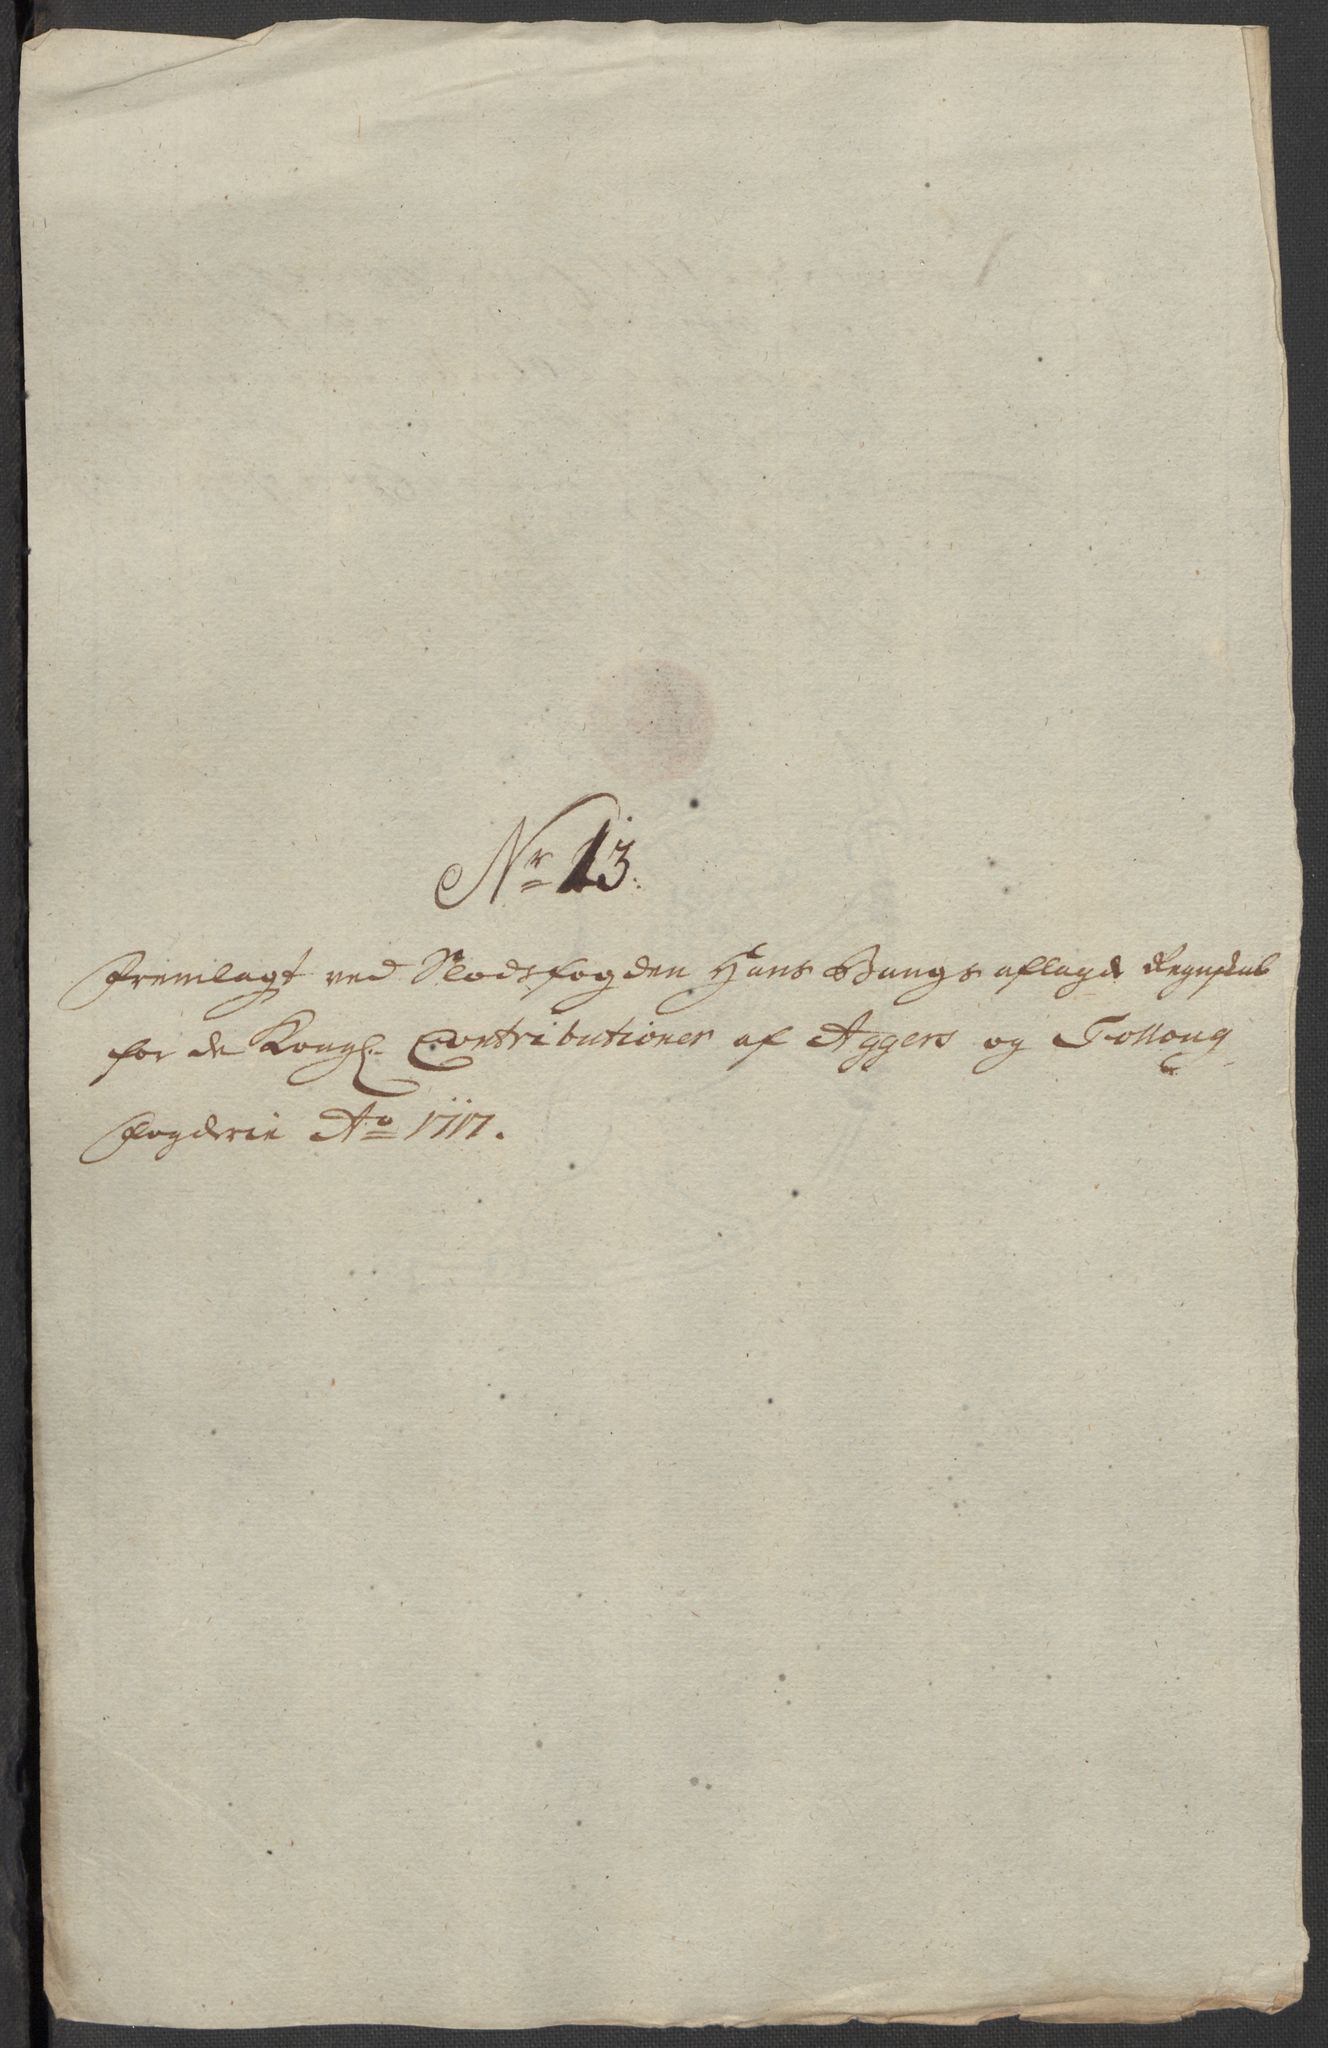 Nr 13.
Fremlagt ved Slodsfogden Hans Bangs aflagde Regnskab
for de Kongl. Contributioner af Aggers og Folloug
Fogderie Ao 1717.